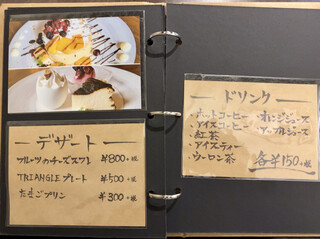 デザート
フルーツのチーズスフレ ¥800+税
TRIANGLEプレート ¥500+税
たまごプリン ¥300+税
ドリンク
・ホットコーヒー ・オレンジジュース
・アイスコーヒー ・アップルジュース
・紅茶
・アイスティー
・ウーロン茶 各¥150+税